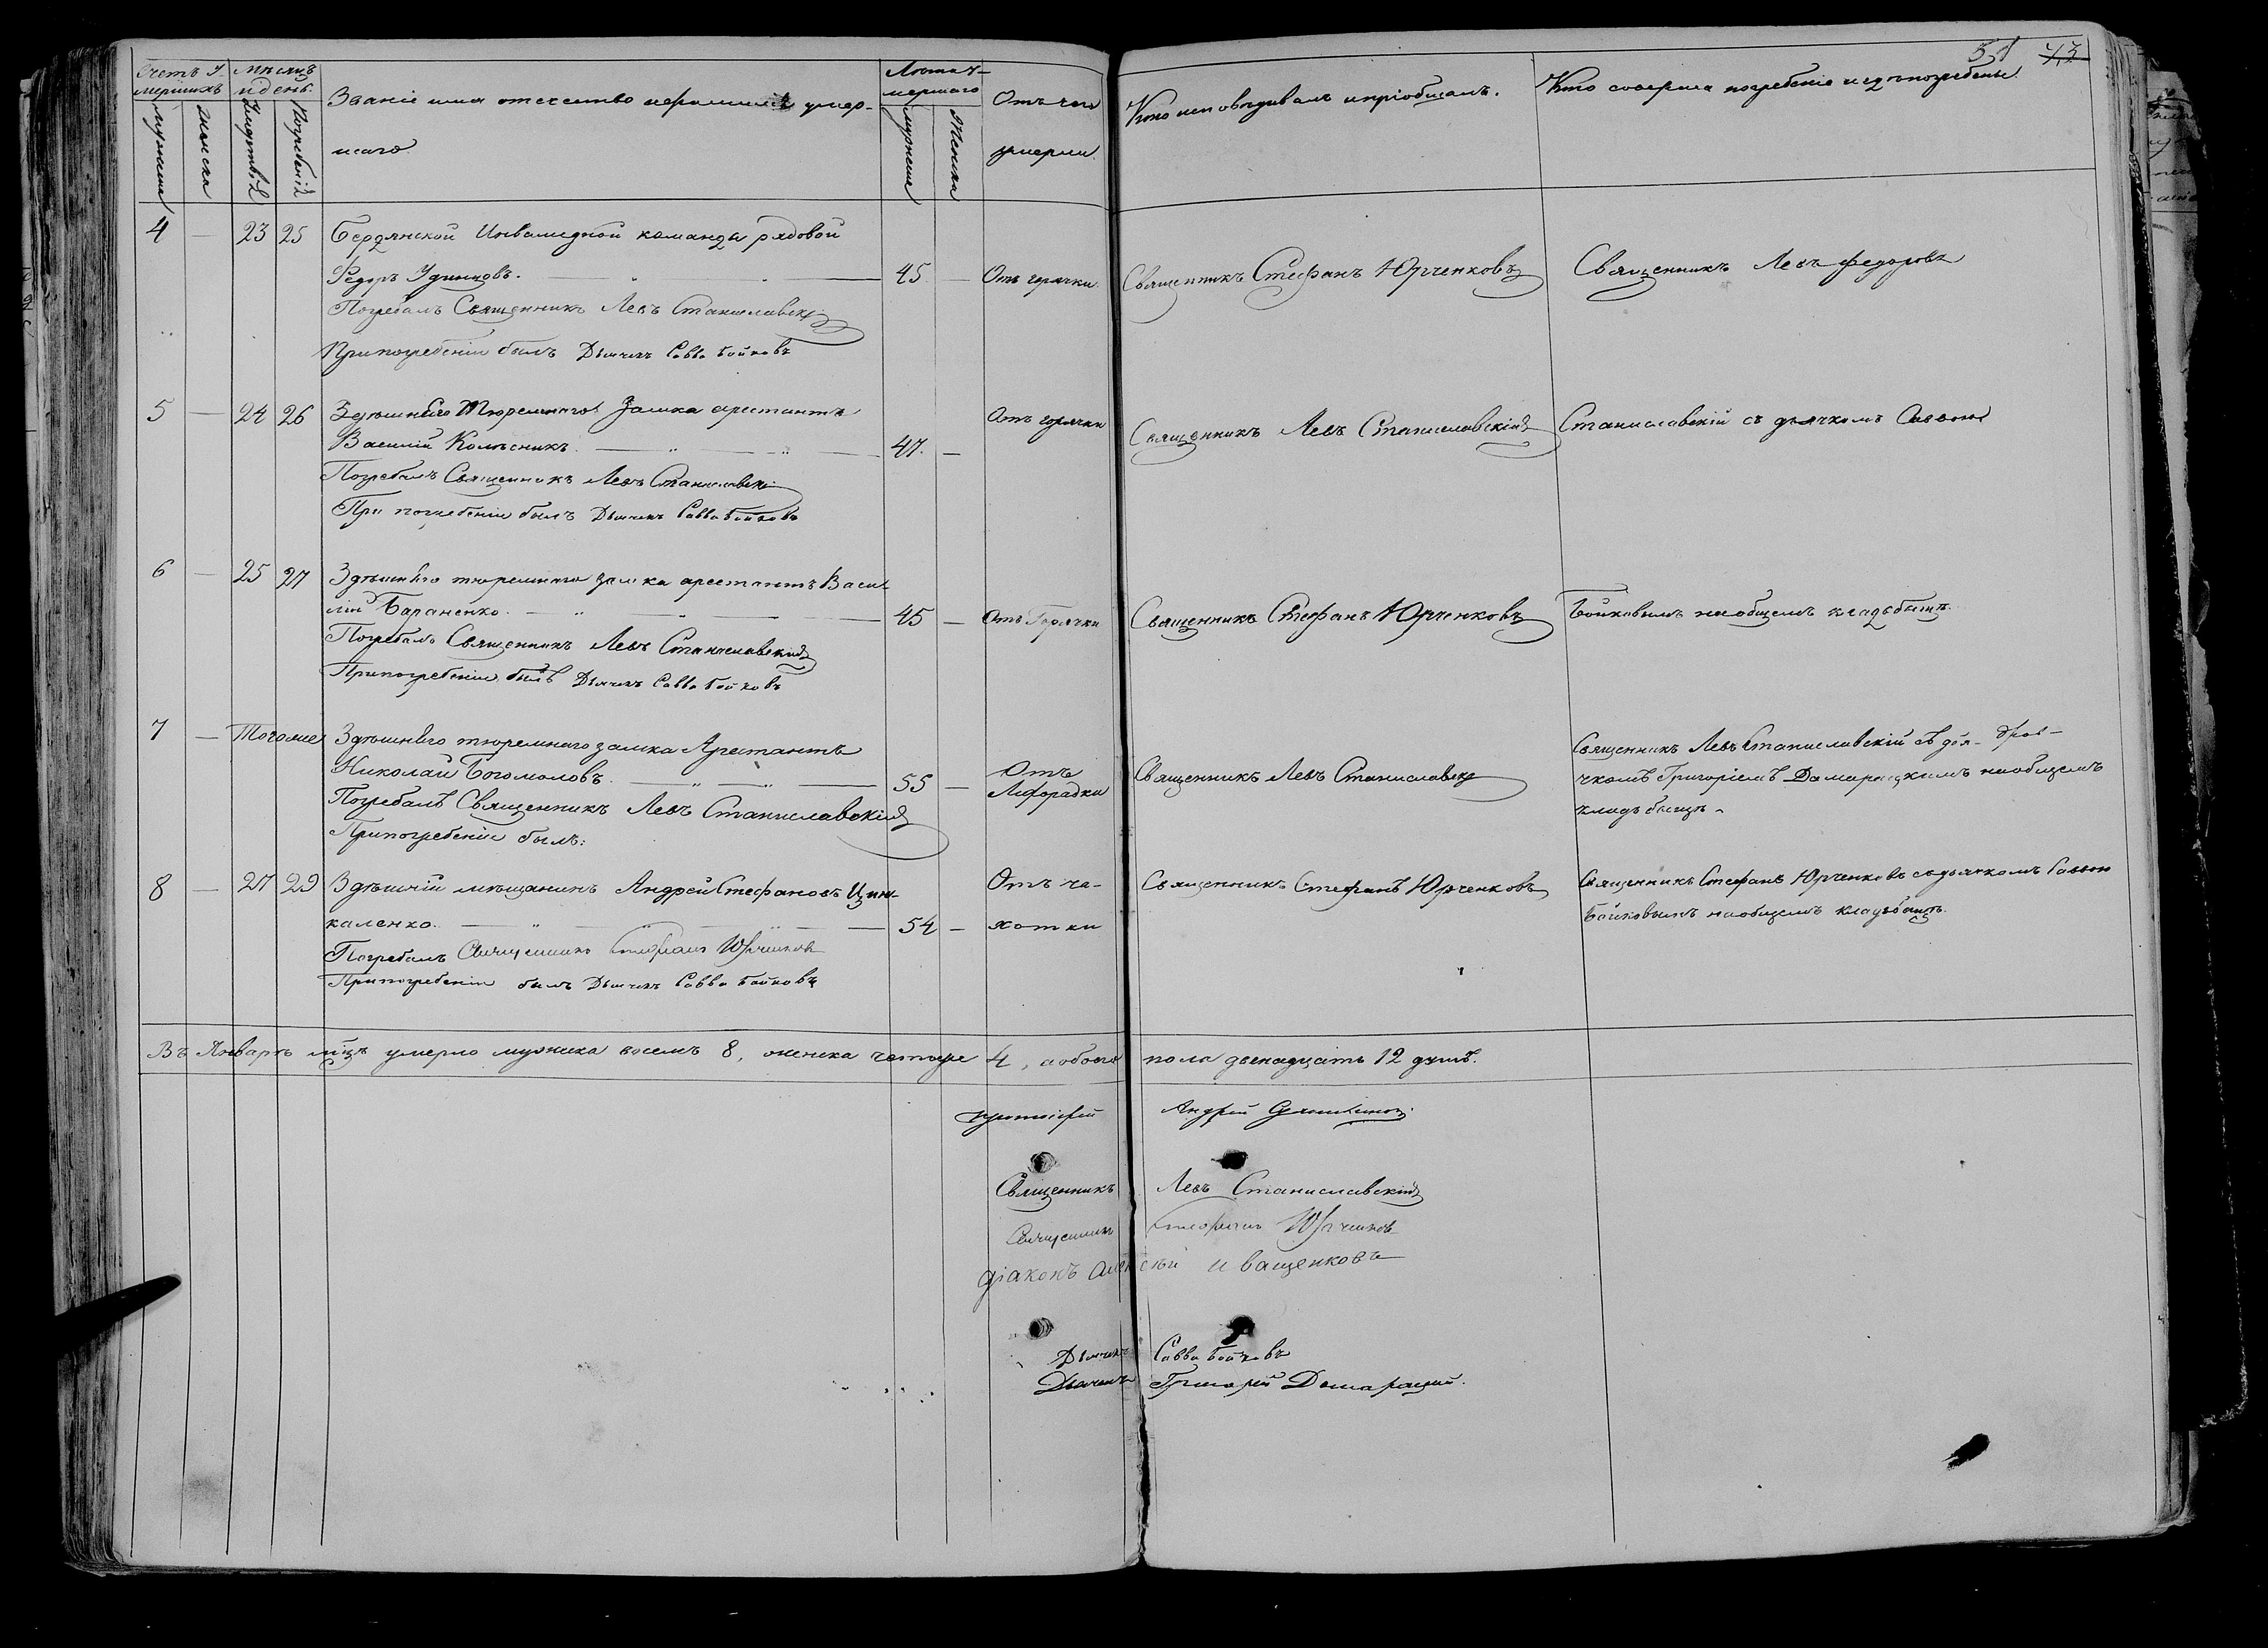 51 43
Счетъ у- мѣсяцъ Званіе имя отечество и фамилія умер- Лѣта у- Отъ чего Кто исповѣдивалъ и пріобщалъ. Кто соверша погребеніе и гдѣ погребены.
мершихъ и день. шаго мершаго умерли.
мужеска женска Смерти Погребенія мужеска женска
4 — 23 25 Бердянской Инвалидной команды рядовой
Федоръ Удинцовъ. 45 — Отъ горячки. Священникъ Стефанъ Юрченковъ Священникъ Левъ Федоровъ
Погребалъ Священникъ Левъ Станиславскій
При погребеніи былъ Дьячекъ Савва Бойковъ
5 — 24 26 Здѣшняго Тюремнаго Замка арестантъ
Василій Колѣсникъ. 47. — Отъ горячки Священникъ Левъ Станиславскій Станиславскій съ дьячкомъ Саввою
Погребалъ Священникъ Левъ Станиславскій
При погребеніи былъ Дьячекъ Савва Бойковъ
6 — 25 27 Здѣшняго тюремнаго замка арестантъ Васи-
лій Бараненко. 45 — Отъ Горячки Священникъ Стефанъ Юрченковъ Бойковымъ на общемъ кладбищѣ.
Погребалъ Священникъ Левъ Станиславскій
При погребеніи былъ Дьячекъ Савва Бойковъ
7 — Тогоже Здѣшняго тюремнаго замка Арестантъ
Николай Богомоловъ. 55 — Отъ Лихорадки Священникъ Левъ Станиславскій Священникъ Левъ Станиславскій съ дья-
Погребалъ Священникъ Левъ Станиславскій чкомъ Григоріемъ Домарацкимъ на общемъ
При погребеніи былъ: кладьбищѣ
8 — 27 29 Здѣшній мѣщанинъ Андрей Стефановъ Цин-
каленко. 54 — Отъ ча-
хотки Священникъ Стефанъ Юрченковъ Священникъ Стефанъ Юрченковъ съ дьячкомъ Саввою
Бойковымъ на общемъ кладьбищѣ.
Погребалъ Священникъ Стефанъ Юрченковъ
При погребеніи былъ Дьячекъ Савва Бойковъ
Въ Январѣ мцѣ умерло мужеска восемъ 8, женска четыре 4, а обоего пола двенадцать 12 душъ.
Протоіерей Андрей
Священникъ Левъ Станиславскій
Священникъ Стефанъ Юрченковъ
Діаконъ Алексѣй Иващенковъ
Дьячекъ Савва Бойковъ
Дьячекъ Григорій Домарацкий.